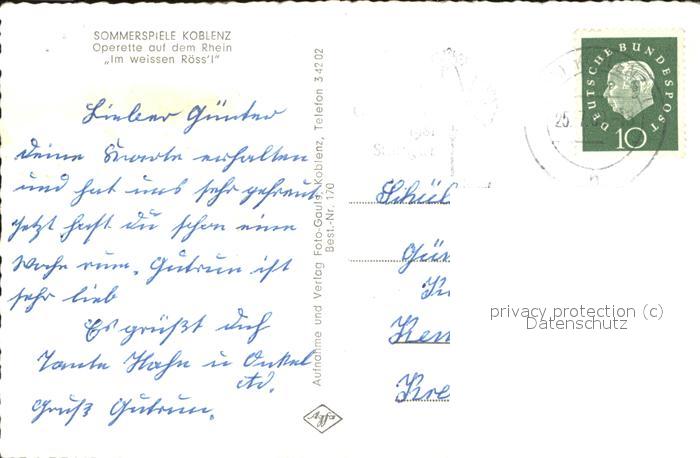 SOMMERSPIELE KOBLENZ
Operette auf dem Rhein
„Im weissen Röss'l"
Lieber Günter
deine Karte erhalten
und hat uns sehr gefreut.
Jetzt hast du schon eine
Woche rum. Gutrun ist
sehr lieb
Es grüßt dich
Tante Hahn u Onkel
Gruß Gutrun.
Aufnahme und Verlag Foto-Gauls, Koblenz, Telefon 34202
Best.-Nr. 170
Agfa
DEUTSCHE BUNDESPOST
10
25.
Schül
Gün
Kr
Ken
Kre
privacy protection (c)
Datenschutz